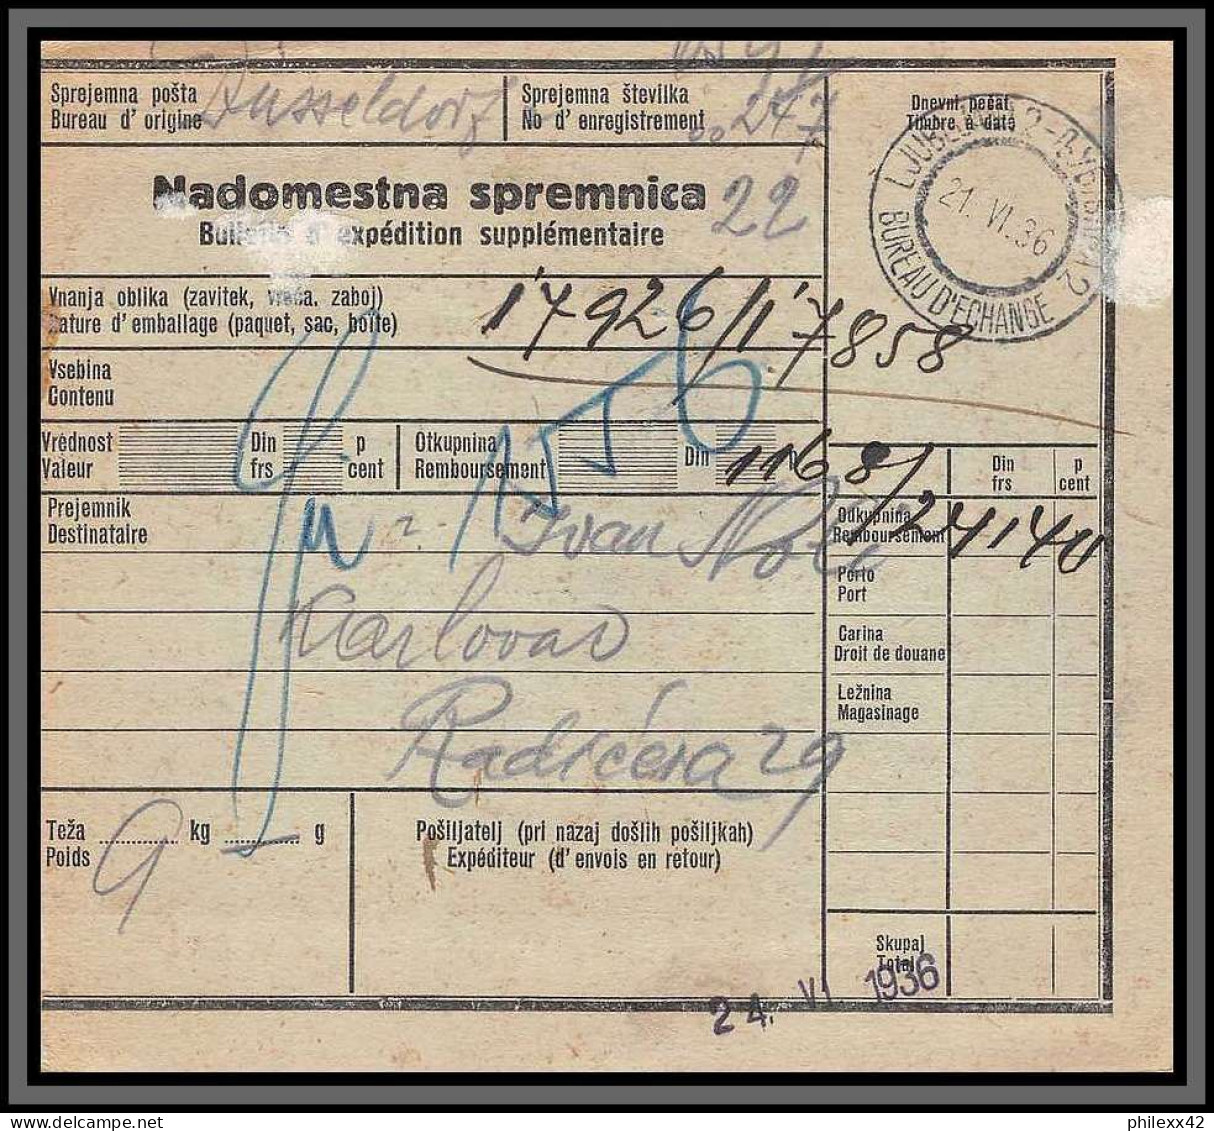 Sprejemna pošta
Bureau d' origine
Dusseldorf
Sprejemna številka
No d' enregistrement
247
22
Dnevni pečat
Timbre à date
LJUBLJANA 2
21. VI. 36
BUREAU D'ECHANGE
Nadomestna spremnica
Bulletin d' expédition supplémentaire
Vnanja oblika (zavitek, vreča, zaboj)
Nature d' emballage (paquet, sac, boîte)
17926/17858
Vsebina
Contenu
1556
Vrédnost
Valeur
Din
frs
p
cent
Otkupnina
Remboursement
Din
1168/24140
Din
frs
p
cent
Prejemnik
Destinataire
Ivan
Karlovac
Radićeva 29
Odkupnina
Remboursement
Porto
Port
Carina
Droit de douane
Ležnina
Magasinage
Teža
Poids
9
kg
g
Pošiljatelj (pri nazaj došlih pošiljkah)
Expéditeur (d' envois en retour)
Skupaj
Total
24. VI 1936
philexx42